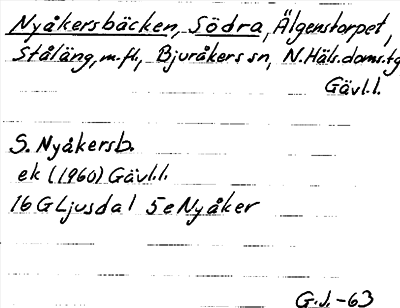 Nyåkersbäcken, Södra, Älgenstorpet,
Ståläng, m.fl., Bjuråkers sn, N.Häls.doms.tg
Gävl.l.
S. Nyåkersb.
ek (1960) Gävl.l.
16 G Ljusdal 5e Nyåker
G.J.-63